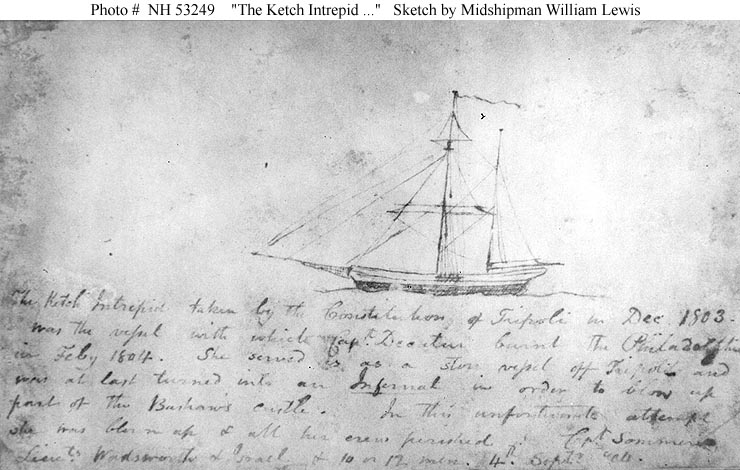 Photo # NH 53249 "The Ketch Intrepid ..." Sketch by Midshipman William Lewis
The Ketch Intrepid taken by the Constitution of Tripoli in Dec 1803.
was the vessel with which Capt Decatur burnt the Philadelphia
in Feby 1804. She served as a store vessel off Tripoli and
was at last turned into an Infernal in order to blow up
part of the Bashaw's castle. In this unfortunate attempt
she was blown up & all her crew perished. Capt Sommers
Lieuts Wadsworth & Israel & 10 or 12 men. 4th Septr